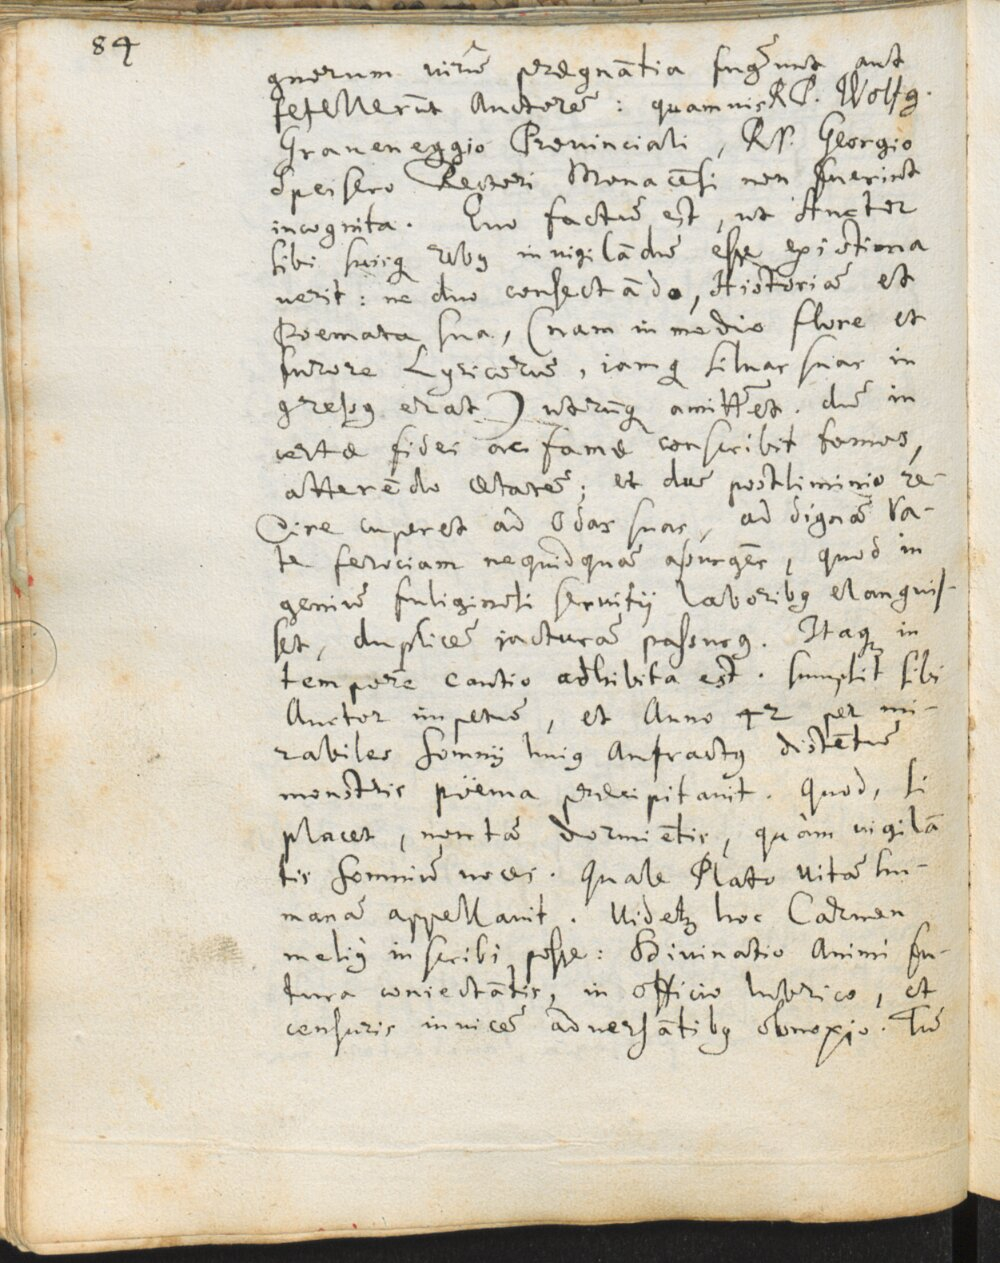 84
gnorum virū prægnātia fugērunt aut
fefellerūt Auctorē: quamvis R.P. Wolfg.
Graveneggio Provinciali, R.P. Georgio
Speisero Rectori Monacēsi non fuerint
incognita. Quo factū est, ut Auctor
sibi suisq rebq invigilādū esse existima
verit: ne duo consectādo, Historiā et
Poemata sua, (nam in medio flore et
furore Lyricorū, iamq silvas suas in
gressq erat) utrumq amittēet. dū in
certæ fidei ac famæ conscribit tomos,
atterēdo ætatē; et dū postliminio re-
dire cuperet ad Odas suas, ad dignā Va-
te ferociam nequidquā assurgēs, quod in
geniū fuliginosi servitij laboribq elanguis-
set, duplicē iacturā passurq. Itaq in
tempore cautio adhibita est. Sumpsit sibi
Auctor impetū, et Anno 42 per mi-
rabiles Somnij huiq Anfractq distētū
monstris pöema præcipitavit. Quod, si
placet, non tā dormiētis, quàm vigilā
tis Somniū voces. Quale Plato vitā hu-
manā appellavit. Videtq hoc Carmen
meliq inscribi posse: Divinatio Animi fu-
tura coniectātis, in officio lubrico, et
censuris invicē adversātibq obnoxio. Tū